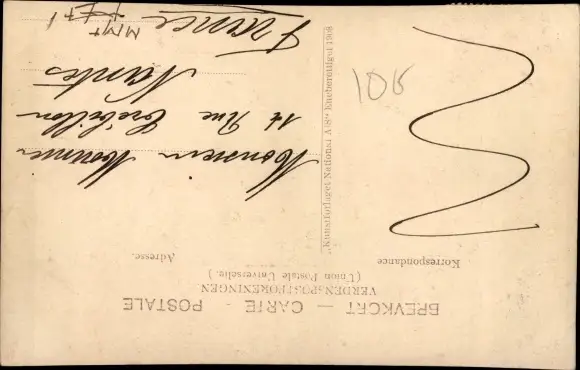 BREVKORT — CARTE - POSTALE
VERDENSPOSTFORENINGEN
(Union Postale Universelle.)
Korrespondance
Adresse.
"Kunstforlaget National A/S" Eneberettiget 1908
Monsieur
14 Rue Crébillon
Nantes
France